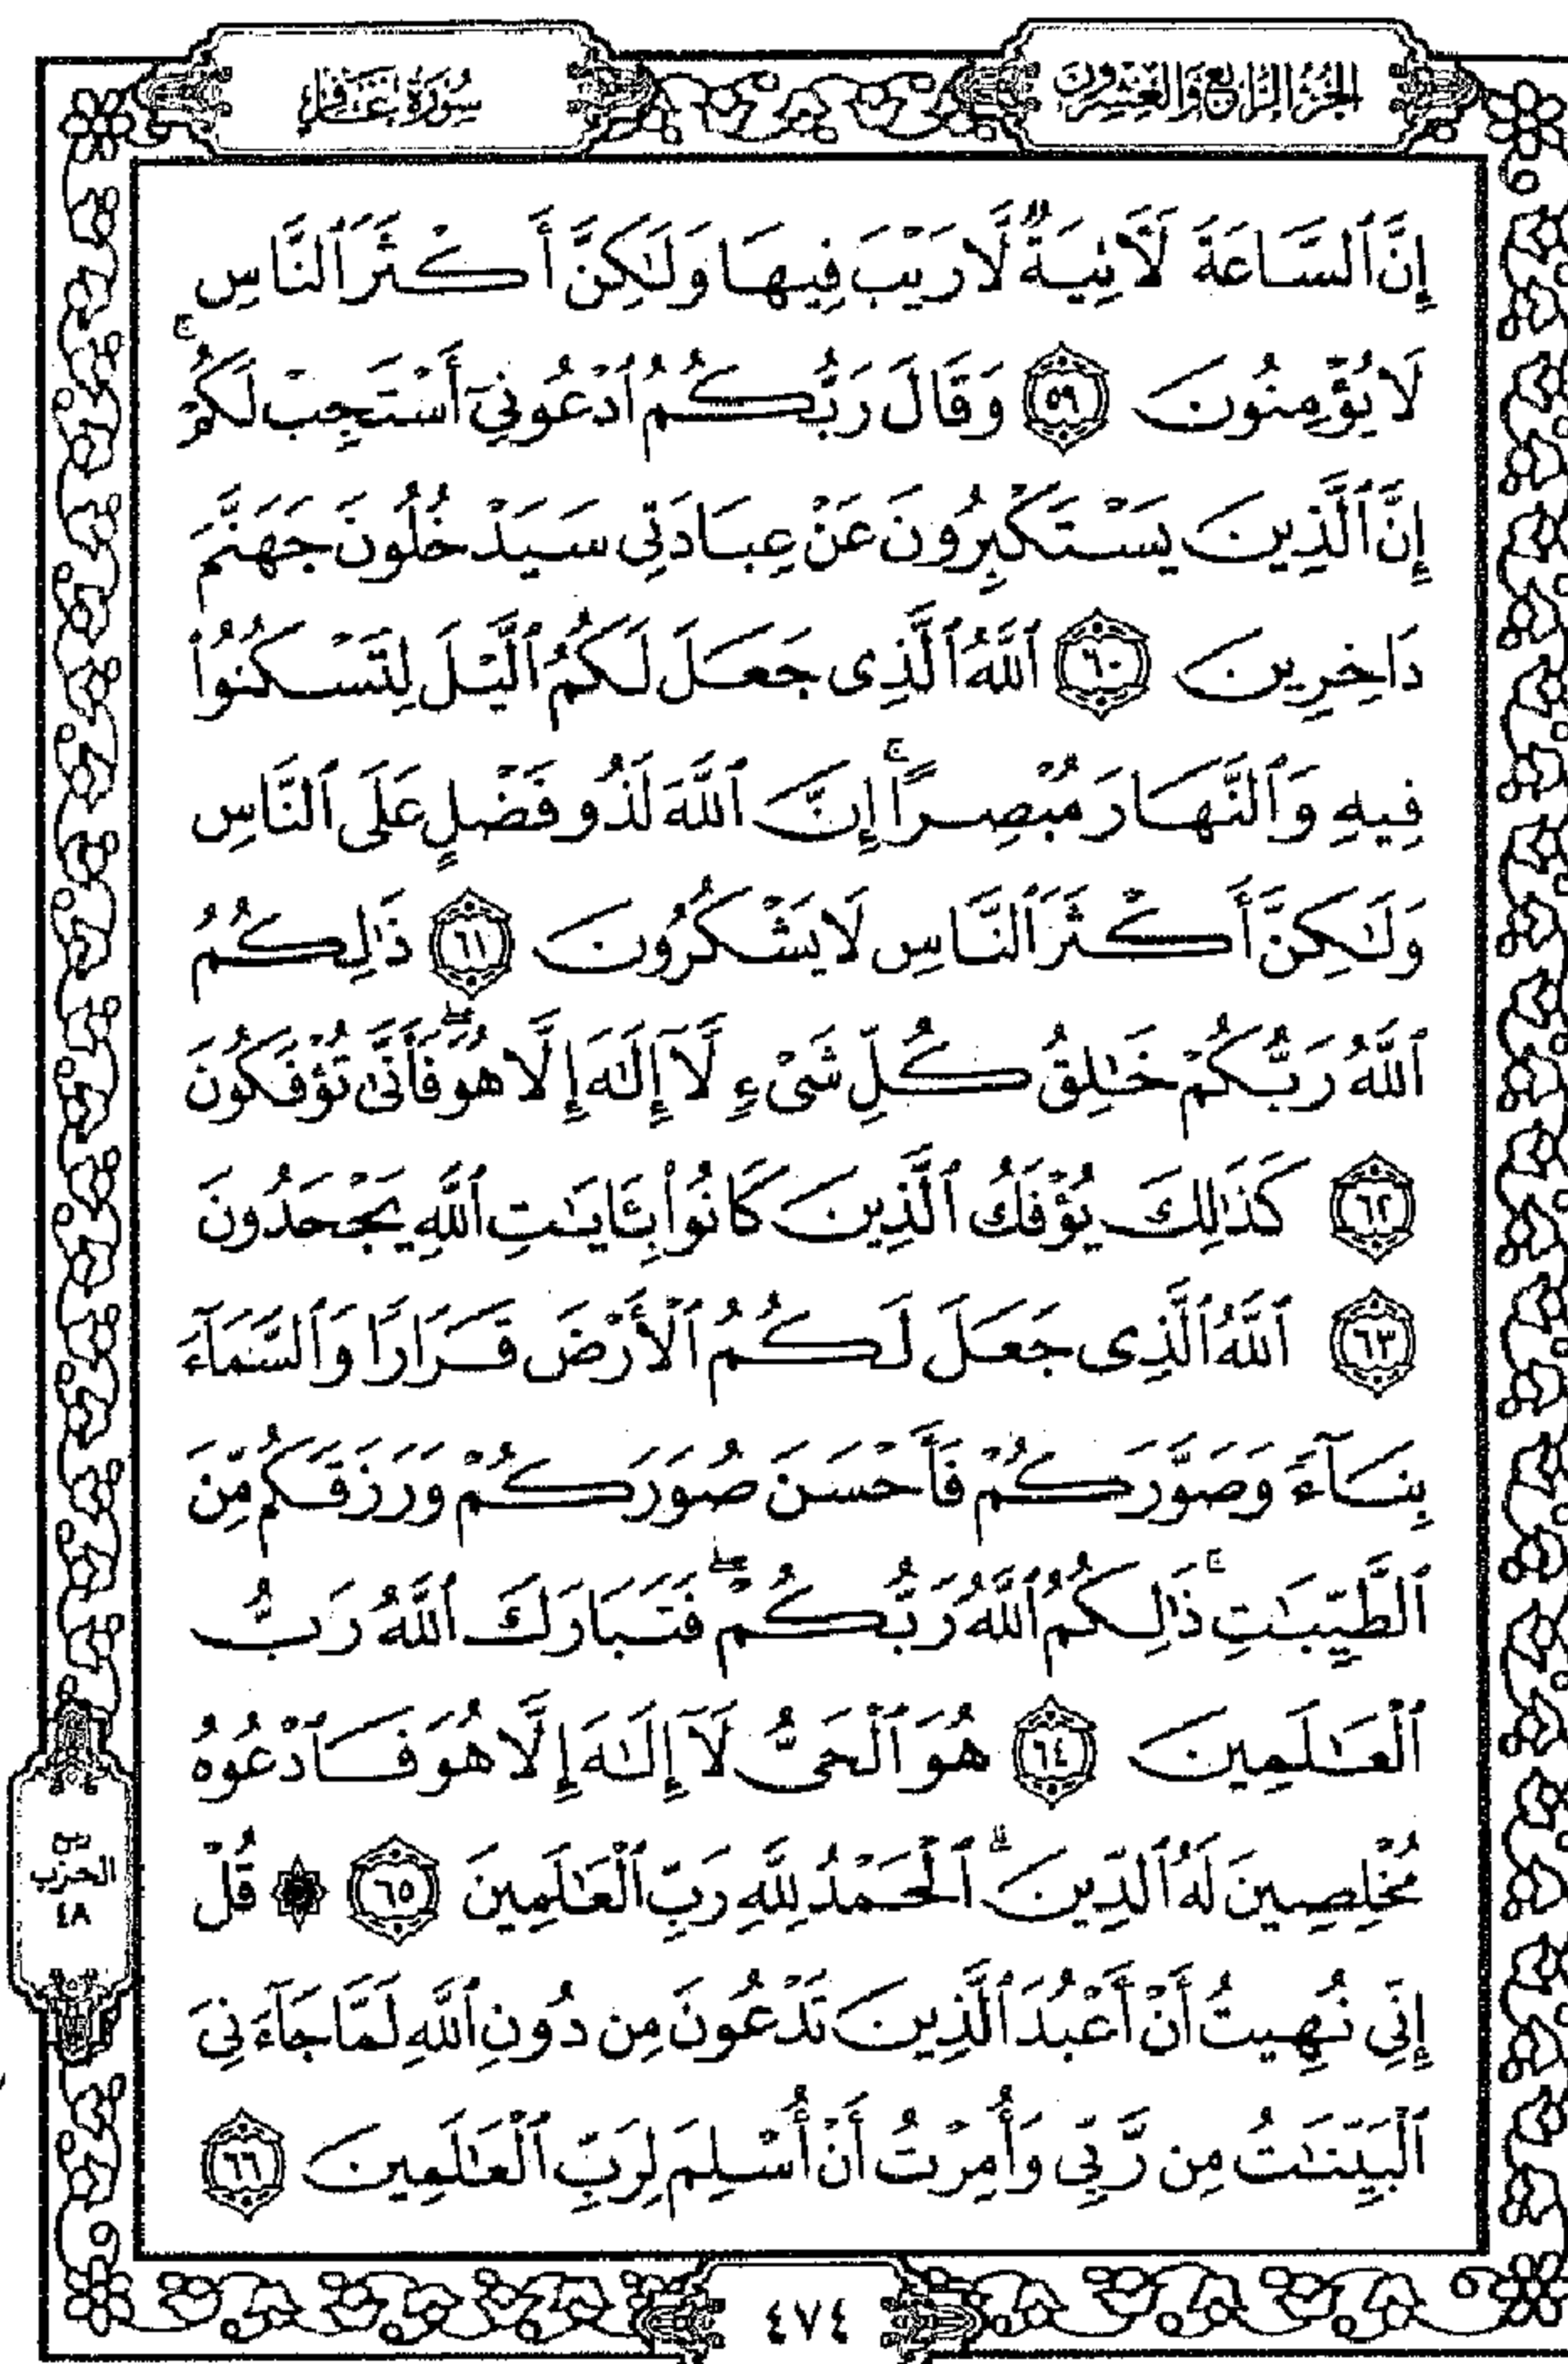 الجزء الرابع والعشرون
سورة غافر
إِنَّ ٱلسَّاعَةَ لَـَٔاتِيَةٌ لَّا رَيْبَ فِيهَا وَلَـٰكِنَّ أَكْثَرَ ٱلنَّاسِ
لَا يُؤْمِنُونَ ٥٩ وَقَالَ رَبُّكُمُ ٱدْعُونِىٓ أَسْتَجِبْ لَكُمْ ۚ
إِنَّ ٱلَّذِينَ يَسْتَكْبِرُونَ عَنْ عِبَادَتِى سَيَدْخُلُونَ جَهَنَّمَ
دَاخِرِينَ ٦٠ ٱللَّهُ ٱلَّذِى جَعَلَ لَكُمُ ٱلَّيْلَ لِتَسْكُنُوا۟
فِيهِ وَٱلنَّهَارَ مُبْصِرًا ۚ إِنَّ ٱللَّهَ لَذُو فَضْلٍ عَلَى ٱلنَّاسِ
وَلَـٰكِنَّ أَكْثَرَ ٱلنَّاسِ لَا يَشْكُرُونَ ٦١ ذَٰلِكُمُ
ٱللَّهُ رَبُّكُمْ خَـٰلِقُ كُلِّ شَىْءٍ لَّآ إِلَـٰهَ إِلَّا هُوَ ۖ فَأَنَّىٰ تُؤْفَكُونَ
٦٢ كَذَٰلِكَ يُؤْفَكُ ٱلَّذِينَ كَانُوا۟ بِـَٔايَـٰتِ ٱللَّهِ يَجْحَدُونَ
٦٣ ٱللَّهُ ٱلَّذِى جَعَلَ لَكُمُ ٱلْأَرْضَ قَرَارًا وَٱلسَّمَآءَ
بِنَآءً وَصَوَّرَكُمْ فَأَحْسَنَ صُوَرَكُمْ وَرَزَقَكُم مِّنَ
ٱلطَّيِّبَـٰتِ ۚ ذَٰلِكُمُ ٱللَّهُ رَبُّكُمْ ۖ فَتَبَارَكَ ٱللَّهُ رَبُّ
ٱلْعَـٰلَمِينَ ٦٤ هُوَ ٱلْحَىُّ لَآ إِلَـٰهَ إِلَّا هُوَ فَٱدْعُوهُ
مُخْلِصِينَ لَهُ ٱلدِّينَ ۗ ٱلْحَمْدُ لِلَّهِ رَبِّ ٱلْعَـٰلَمِينَ ٦٥ ۞ قُلْ
إِنِّى نُهِيتُ أَنْ أَعْبُدَ ٱلَّذِينَ تَدْعُونَ مِن دُونِ ٱللَّهِ لَمَّا جَآءَنِىَ
ٱلْبَيِّنَـٰتُ مِن رَّبِّى وَأُمِرْتُ أَنْ أُسْلِمَ لِرَبِّ ٱلْعَـٰلَمِينَ ٦٦
الحزب
٤٨
٤٧٤